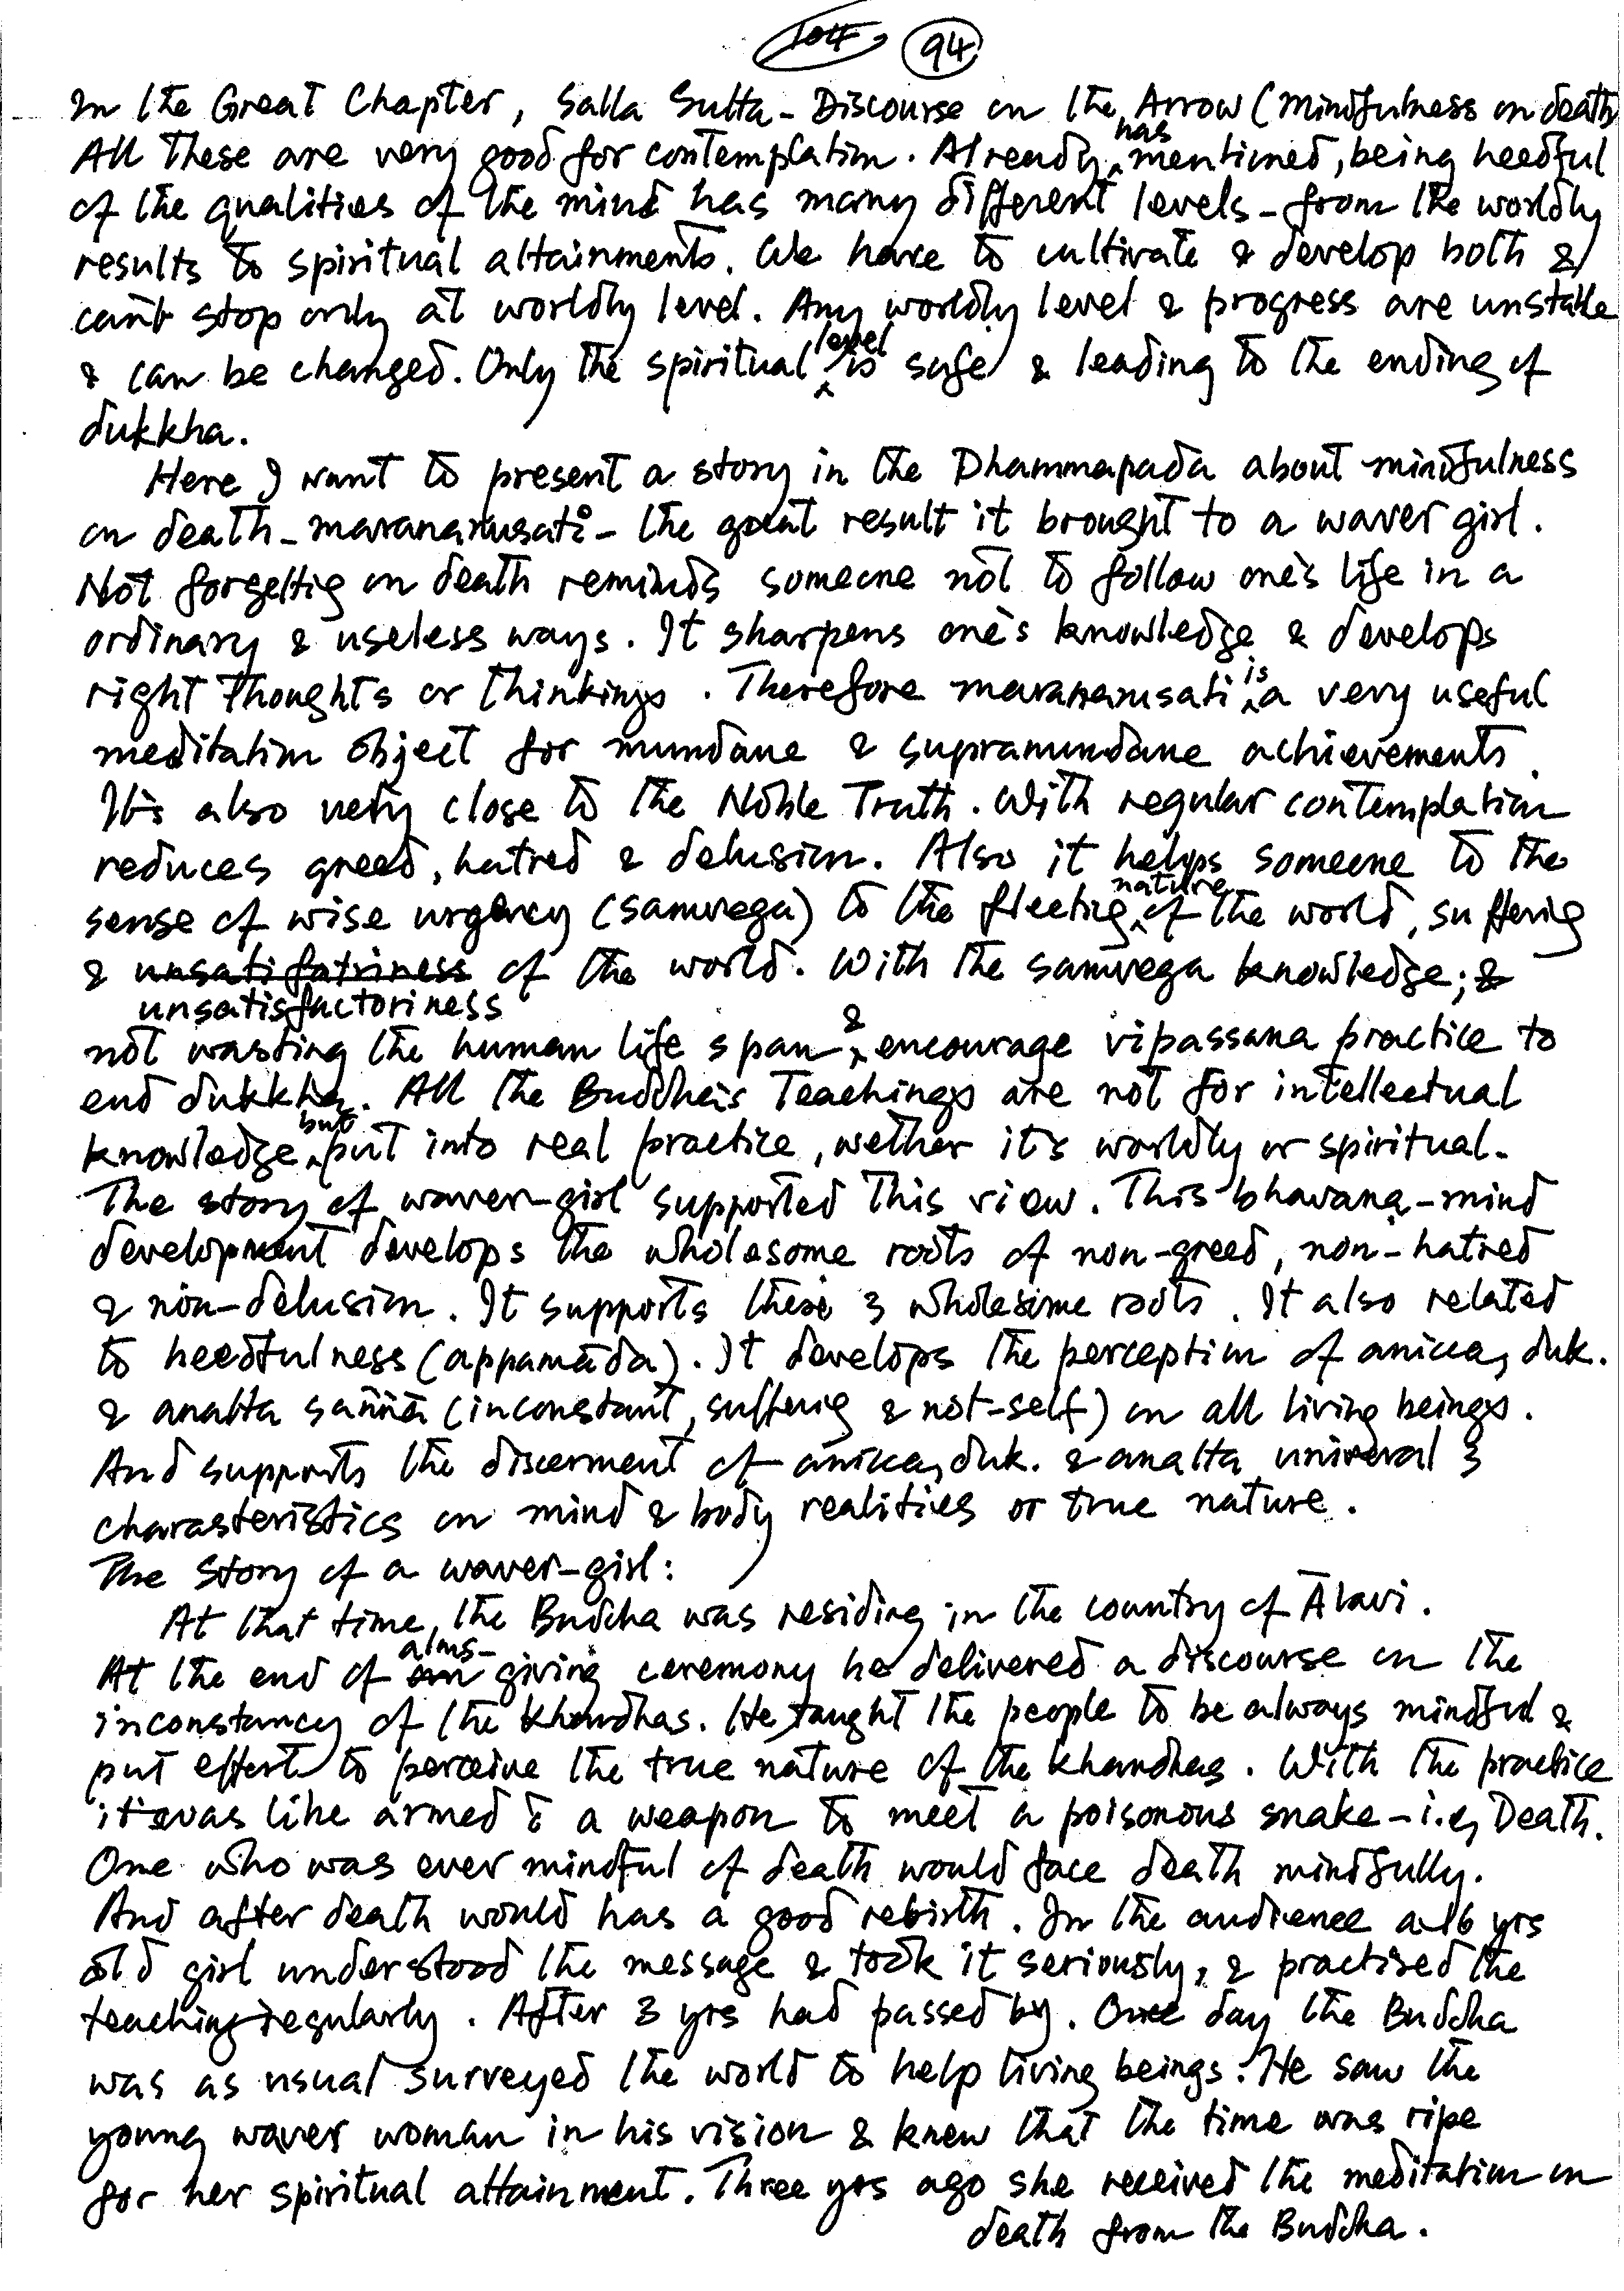 104 94
In the Great Chapter, Salla Sutta - Discourse on the Arrow (Mindfulness on death
All these are very good for contemplation. Already has mentioned, being heedful
of the qualities of the mind has many different levels - from the worldly
results to spiritual attainments. We have to cultivate & develop both &
can't stop only at worldly level. Any worldly level & progress are unstable
& can be changed. Only the spiritual level is safe & leading to the ending of
dukkha.
Here I want to present a story in the Dhammapada about mindfulness
on death - marananusati - the great result it brought to a waver girl.
Not forgetting on death reminds someone not to follow one's life in a
ordinary & useless ways. It sharpens one's knowledge & develops
right thoughts or thinkings. Therefore marananusati is a very useful
meditation object for mundane & supramundane achievements.
It's also very close to the Noble Truth. With regular contemplation
reduces greed, hatred & delusion. Also it helps someone to the
sense of wise urgency (samvega) to the fleeting nature of the world, suffering
& unsatisfactoriness of the world. With the samvega knowledge; &
not wasting the human life span & encourage vipassana practice to
end dukkha. All the Buddha's Teachings are not for intellectual
knowledge but put into real practice, wether it's worldly or spiritual.
The story of waver-girl supported this view. This bhavana - mind
development develops the wholesome roots of non-greed, non-hatred
& non-delusion. It supports these 3 wholesome roots. It also related
to heedfulness (appamāda). It develops the perception of anicca, duk.
& anatta saññā (inconstant, suffering & not-self) on all living beings.
And supports the discernment of anicca, duk. & anatta univeral 3
charasteristics on mind & body realities or true nature.
The Story of a waver-girl:
At that time, the Buddha was residing in the country of Ālavi.
At the end of alms-giving ceremony he delivered a discourse on the
inconstancy of the khandhas. He taught the people to be always mindful &
put effort to perceive the true nature of the khandhas. With the practice
it was like armed to a weapon to meet a poisonous snake - i.e, Death.
One who was ever mindful of death would face death mindfully.
And after death would has a good rebirth. In the audience a 16 yrs
old girl understood the message & took it seriously, & practised the
teaching regularly. After 3 yrs had passed by. One day the Buddha
was as usual surveyed the world to help living beings. He saw the
young waver woman in his vision & knew that the time was ripe
for her spiritual attainment. Three yrs ago she received the meditation on
death from the Buddha.